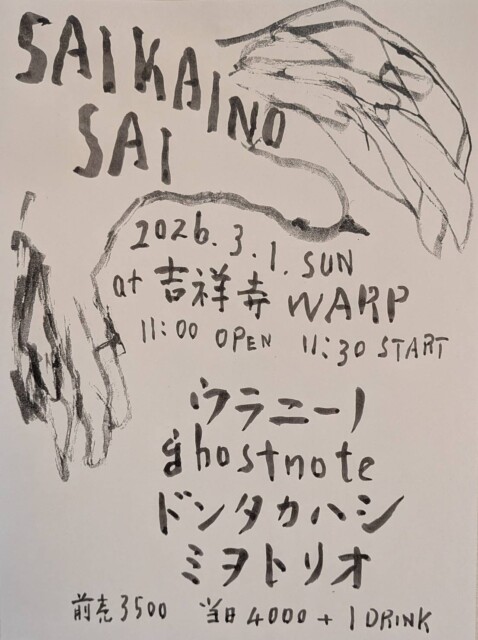 SAIKAINO
SAI
2026.3.1.SUN
at 吉祥寺 WARP
11:00 OPEN 11:30 START
ウラニーノ
ghostnote
ドンタカハシ
ミヲトリオ
前売3500 当日4000+1DRINK